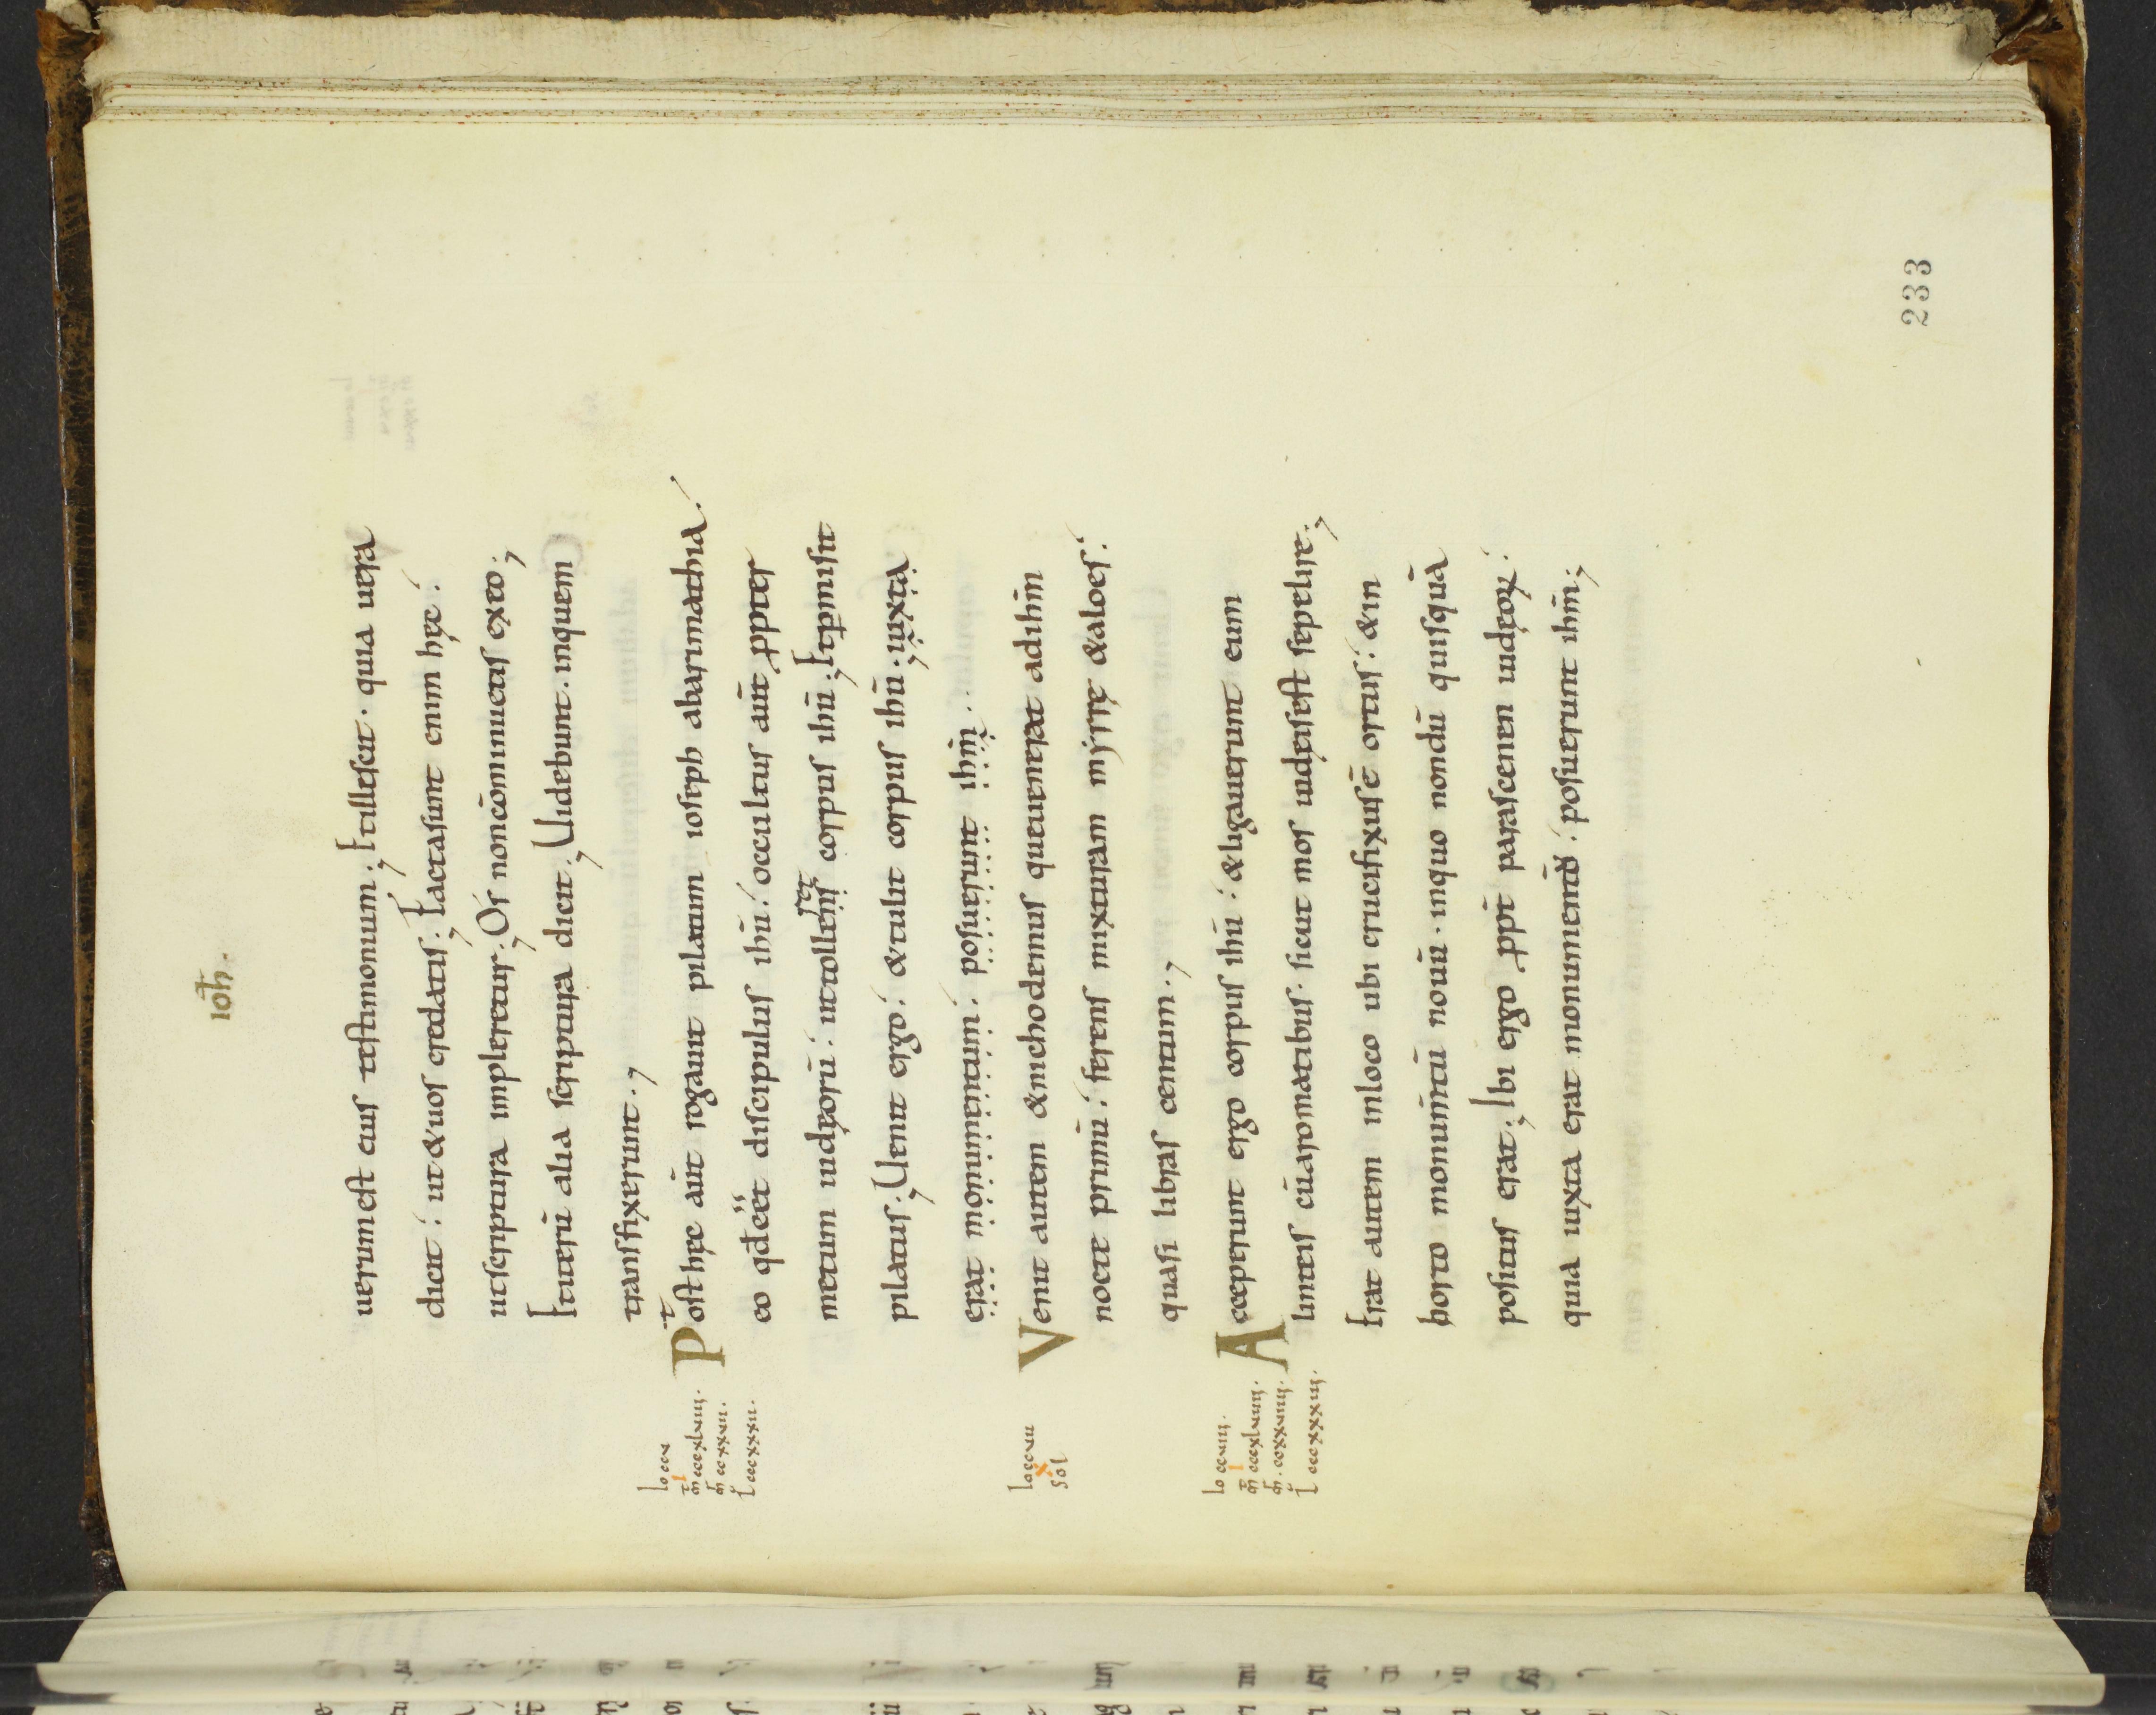 ioh̅.
uerum est eius testimonium; Et ille scit · quia uera
dicit · ut & uos credatis; Facta sunt enim hęc ·
ut scriptura impleretur; Os non cōminuetis ex eo;
Et iterū alia scriptura dicit; Uidebunt · in quem
transfixerunt;
Post hęc aūt rogauit pilatum ioseph ab arimathia ·
eo qđ eēt discipulus ihū · occultus aūt ꝓpter
metum iudęorū · ut tolleret corpus ihū; Et ꝑmisit
pilatus; Uenit ergo · & tulit corpus ihū · iuxta
erat monumentum · posuerunt ihm̄ ·
Venit autem & nichodemus qui uenerat ad ihm̄
nocte primū · ferens mixturam myrrę & aloes ·
quasi libras centum;
Acceperunt ergo corpus ihū · & ligauerunt eum
linteis cū aromatibus · sicut mos iudęis est sepelire;
Erat autem in loco ubi crucifixus ē ortus · & in
horto monum̄tū nouū · in quo nondū quisquā
positus erat; Ibi ergo ꝓpt̄ parasceuen iudęoꝝ ·
quia iuxta erat monumentū · posuerunt ihm̄;
Io ccvi
m̄t cccxlviii.
m̄r ccxxvii.
l cccxxxii.
Io ccvii
x
sol
Io ccviii.
m̄t cccxlviiii.
m̄r ccxxviii.
l cccxxxiii.
233